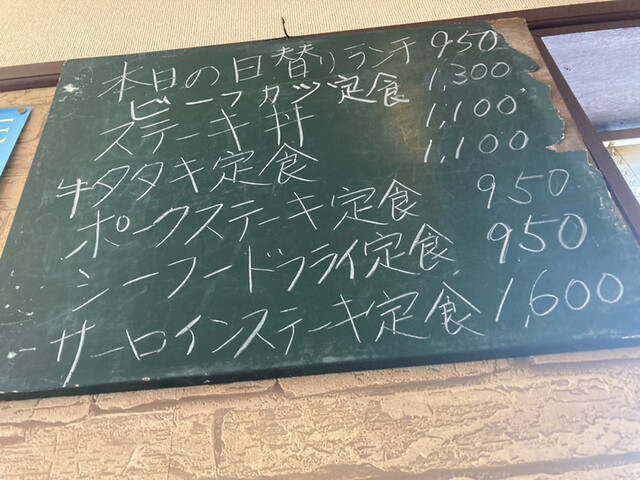 本日の日替りランチ 950
ビーフカツ定食 1,300
ステーキ丼 1,100
牛タタキ定食 1,100
ポークステーキ定食 950
シーフードフライ定食 950
サーロインステーキ定食 1,600